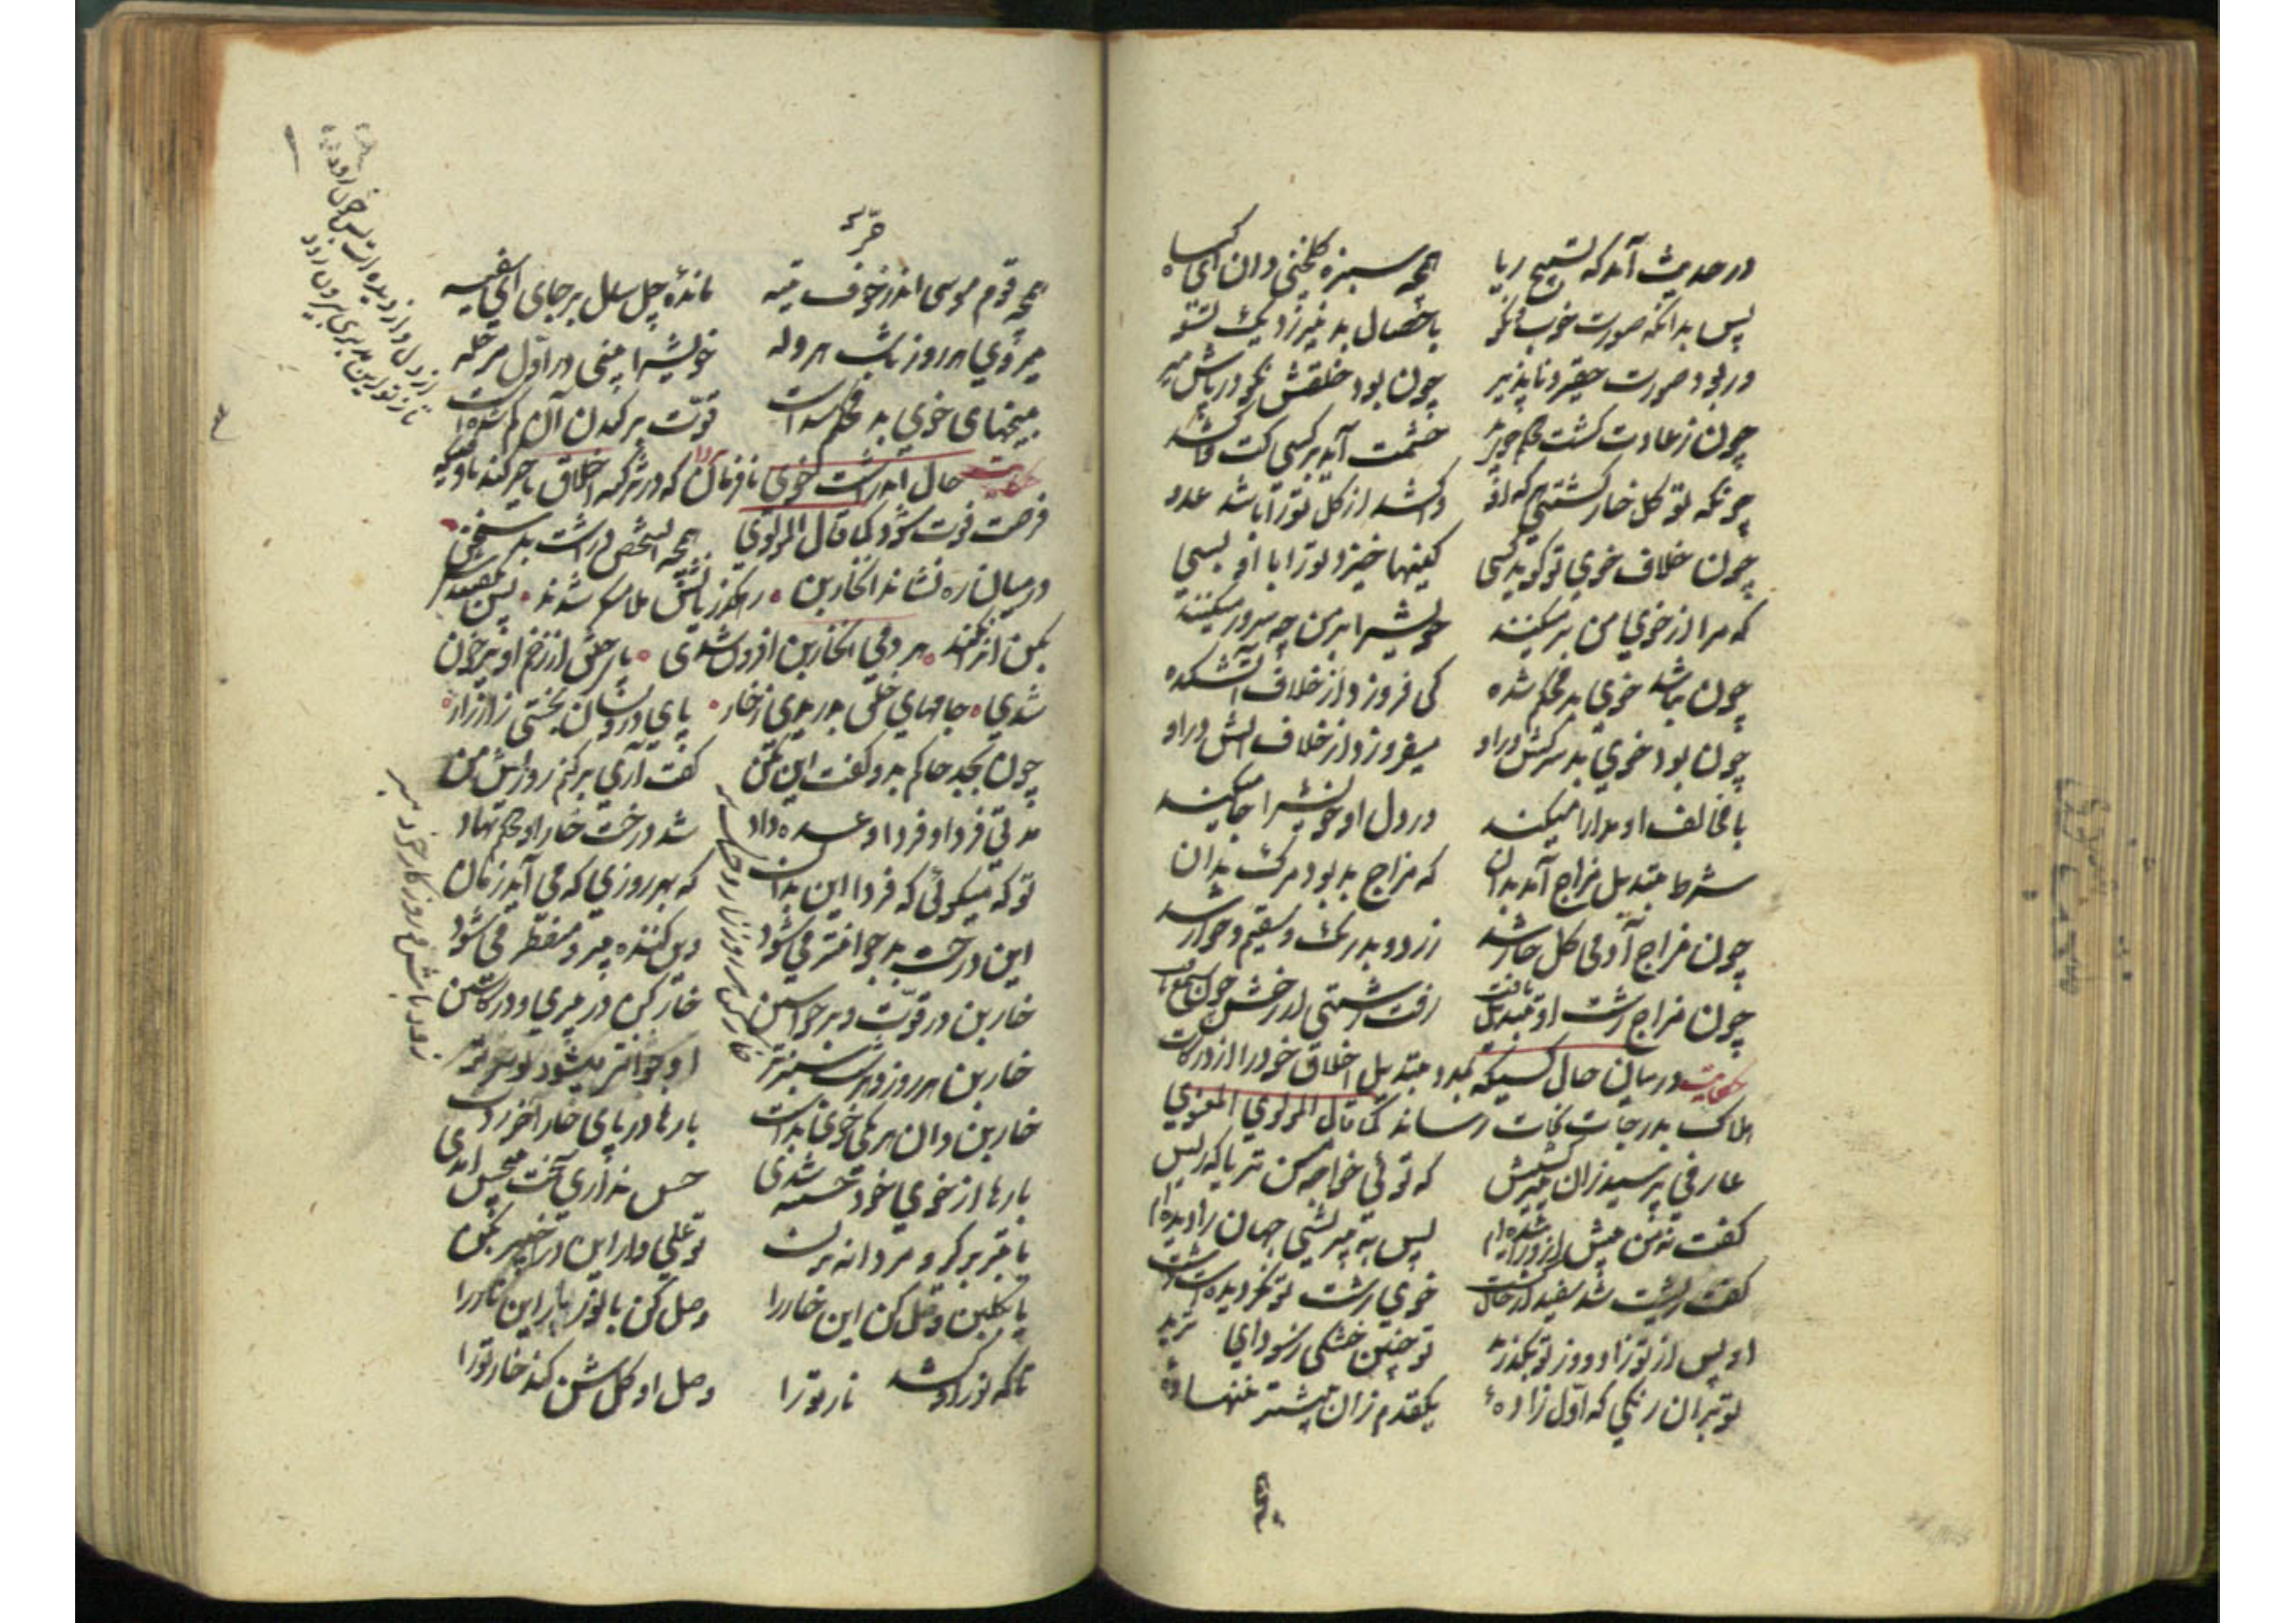 در حدیث آمد که تسبیح ریا همچو سبزه گلخنی دان ای کیا
پس بدانکه صورت خوب و نکو با خصال بد نیرزد یک تسو
ور بود صورت حقیر و ناپذیر چون بود خلقش نکو در پاش میر
چون ز عادت کشت محکم خوی بد خشمت آید بر کسی کت واکشد
چونکه تو کل خوار کشتی هرکه او واکشد از کل تو را باشد عدو
چون خلاف خوی تو کوید کسی کینها خیزد تو را با او بسی
که مرا از خوی من بر میکند خویش را بر من چو سرور میکند
چون نباشد خوی بد محکم شده کی فروزد از خلاف آتشکده
چون بود خوی بد سرکش در او میفروزد از خلاف آتش در او
با مخالف او مدارا میکند در دل او خویش را جا میکند
شرط تبدیل مزاج آمد بدان که مزاج بد بود مرک بدان
چون مزاج آدمی کل خوار شد زرد و بدرنک و سقیم و خوار شد
چون مزاج زشت او تبدیل یافت رفت زشتی از رخش چون شمع تافت
حکایت در بیان حال کسیکه نکرد تبدیل اخلاق خود را از درکات
هلاک بدرجات نجات رساند کما قال المولوی المعنوی
عارفی پرسید زان پیر کشیش که توئی خواجه مسن تر یا که ریش
کفت نه من پیش ازو زائیده‌ام پس به بی ریشی جهان را دیده‌ام
کفت ریشت شد سفید از حال کشت خوی زشت تو نکردیده است زشت
او پس از تو زاد و وز تو بکذرید تو چنین خشکی ز سودای ثرید
تو بران رنکی که اول زاده‌ٔ یکقدم زان پیشتر ننهاده‌ٔ
همچو
همچو قوم موسی اندر خوف تیه مانده‌ٔ چل سال بر جای ای سفیه
میروی هر روز تا شب هروله خویش را بینی در اول مرحله
بیخهای خوی بد محکم شده است قوت بر کندن آن کم شده است
حکایت حال آن زشت خوی نافرمان که در تزکیه اخلاق تاخیر کند تا وقتیکه
فرصت فوت شود کما قال المولوی همچو آن شخص درشت بد سخن
در میان ره نشاند آن خاربن رهکذریانش ملامتکر شدند پس بکفتندش
بکن آنرا نکند هر دمی آن خاربن افزون شدی پای خلق از زخم او پر خون
شدی جامهای خلق بدریدی ز خار پای درویشان بخستی زار زار
چون بجد حاکم بدو کفت این بکن کفت آری بر کنم روزیش من
مدتی فردا و فردا وعده داد شد درخت خار او محکم نهاد
تو که میکوئی که فردا این بدان که بهر روزی که می آید زمان
این درخت بد جوانتر می شود وین کننده پیر و مضطر می شود
خاربن در قوت و برخواستن خار کن در پیری و در کاستن
خاربن هر روز و هر دم سبز تر او جوانتر میشود تو پیر تر
خاربن دان هر یکی خوی بدت بارها در پای خار آخر زدت
بارها از خوی خود خسته شدی حس نداری سخت بیحس آمدی
یا تبر بر کیر و مردانه بزن تو علی وار این در خیبر بکن
یا بکلبن وصل کن این خار را وصل کن با نور یار این نار را
تا که نور او کشد نار تو را وصل او کلشن کند خار تو را